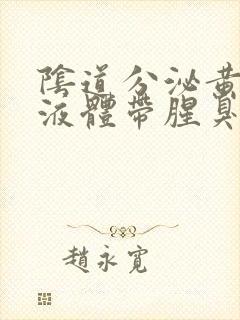 陰道分泌黃
液體帶腥臭
趙永寬